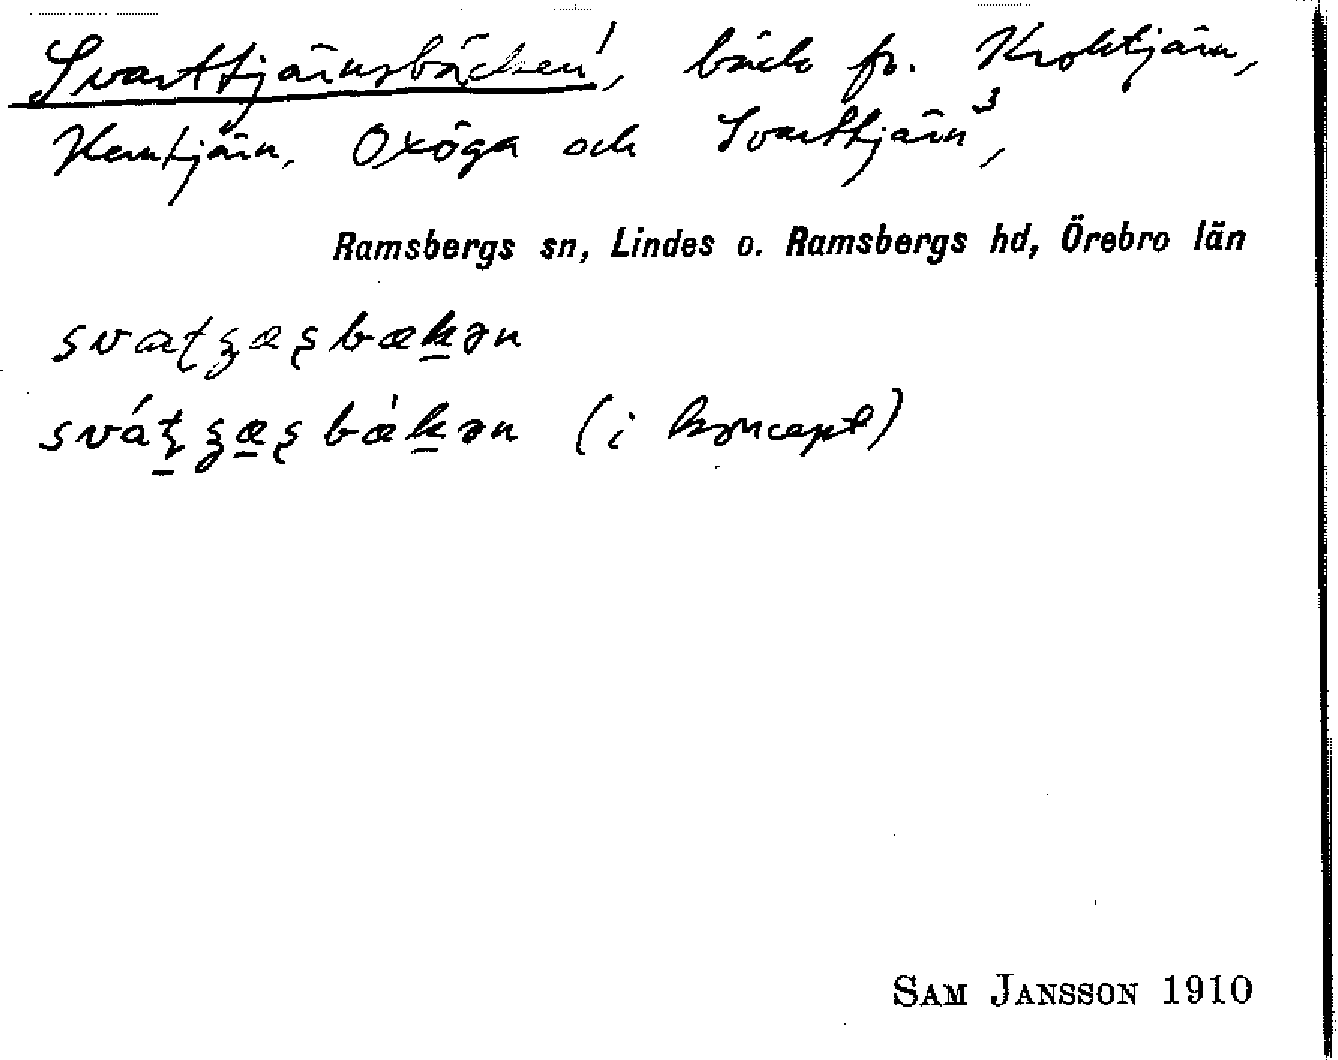 Svarttjärnsbäcken¹, bäck fr. Kroktjärn,
Kerntjärn, Oxöga och Svarttjärn³,
Ramsbergs sn, Lindes o. Ramsbergs hd, Örebro län
(i koncept)
SAM JANSSON 1910